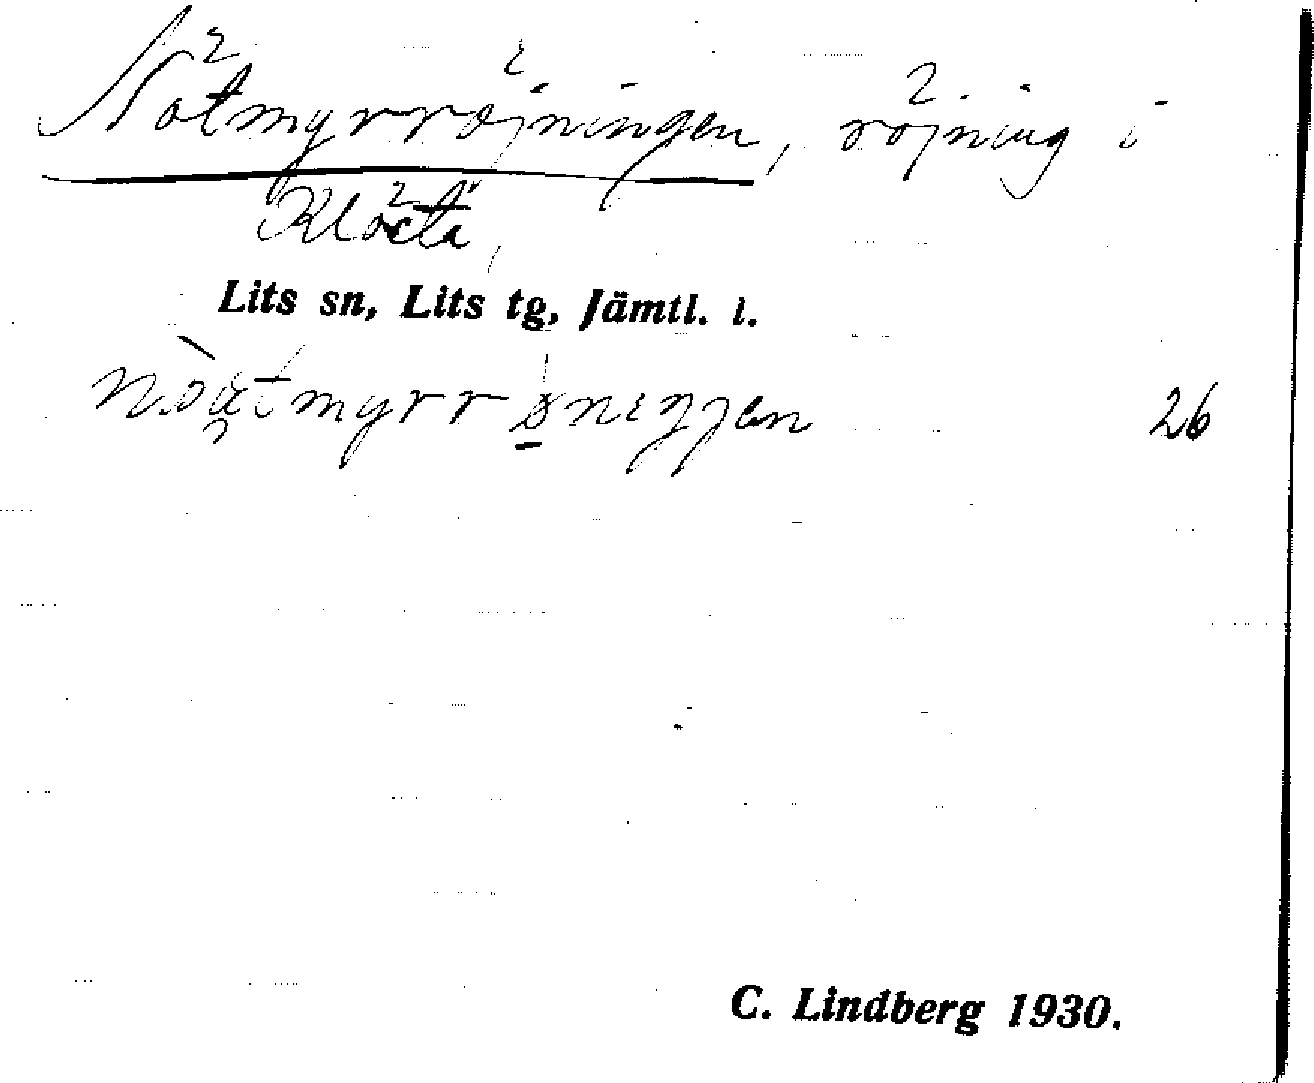 Nötmyrröjningen, röjning i
Klösta,
Lits sn, Lits tg, Jämtl. l.
26
C. Lindberg 1930.